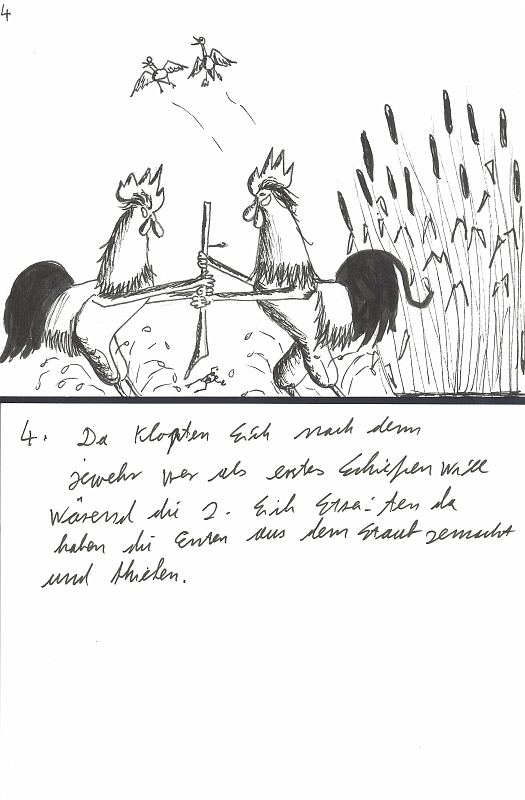 4
4. Da klopten sich nach dem
jewehr wer als erstes schießen will
Wärend die 2. sich streiten da
haben die Enten aus dem Staub gemacht
und